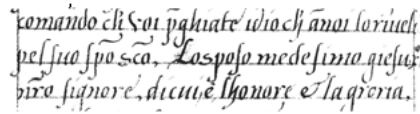 comando cħ voi p̄ghiate idio cħ a noi lo riveli
pel suo spō scō. Lo sposo medesimo giesu x̄
nr̄o signore, di cui, è lhonore e la groria.